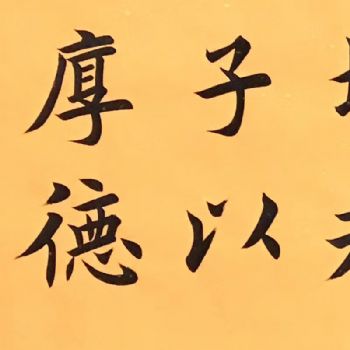 子以
厚德